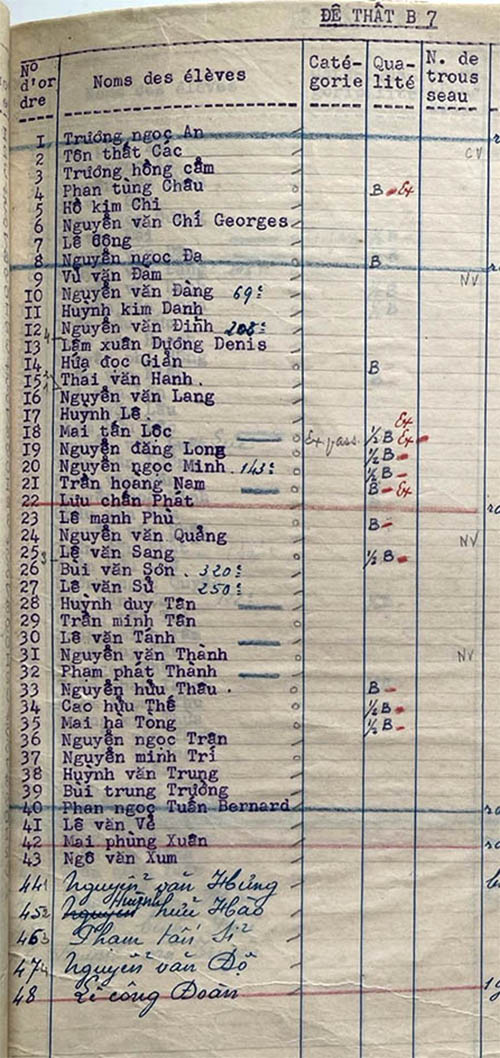 ĐỆ THẤT B 7
Nº d'or dre Noms des élèves Caté- gorie Qua- lité N. de trous seau
1 Trương ngọc An
2 Tôn thất Các CV
3 Trương hồng cẩm
4 Phan tùng Châu B - Ex
5 Hồ kim Chi
6 Nguyễn văn Chí Georges
7 Lê động
8 Nguyễn ngọc Đa B
9 Vũ văn Đảm NV
10 Nguyễn văn Đàng 69:
11 Huỳnh kim Danh
12 Nguyễn văn Đinh 208:
13 Lâm xuân Dương Denis
14 Hứa đọc Giản B
15 Thai văn Hạnh.
16 Nguyễn văn Lang
17 Huỳnh Lê Ex
18 Mai tấn Lộc Ex pass. ½ B Ex -
19 Nguyễn đăng Long ½ B -
20 Nguyễn ngọc Minh .143: ½ B -
21 Trần hoàng Nam B - Ex
22 Lưu chấn Phát
23 Lê mạnh Phù B -
24 Nguyễn văn Quảng NV
25 Lê văn Sang ½ B -
26 Bùi văn Sơn . 320:
27 Lê văn Sử 250:
28 Huỳnh duy Tân
29 Trần minh Tân
30 Lê văn Tánh
31 Nguyễn văn Thành NV
32 Phạm phát Thành
33 Nguyễn hữu Thâu . B -
34 Cao hữu Thế ½ B -
35 Mai hà Tong ½ B -
36 Nguyễn ngọc Trân
37 Nguyễn minh Trí
38 Huỳnh văn Trung
39 Bùi trung Trường
40 Phan ngọc Tuấn Bernard
41 Lê văn Vẽ
42 Mai phùng Xuân
43 Ngô văn Xum
44 Nguyễn văn Hưng
45 Huỳnh hữu Hào
46 Phạm tấn Sĩ
47 Nguyễn văn Độ
48 Lê công Đoàn